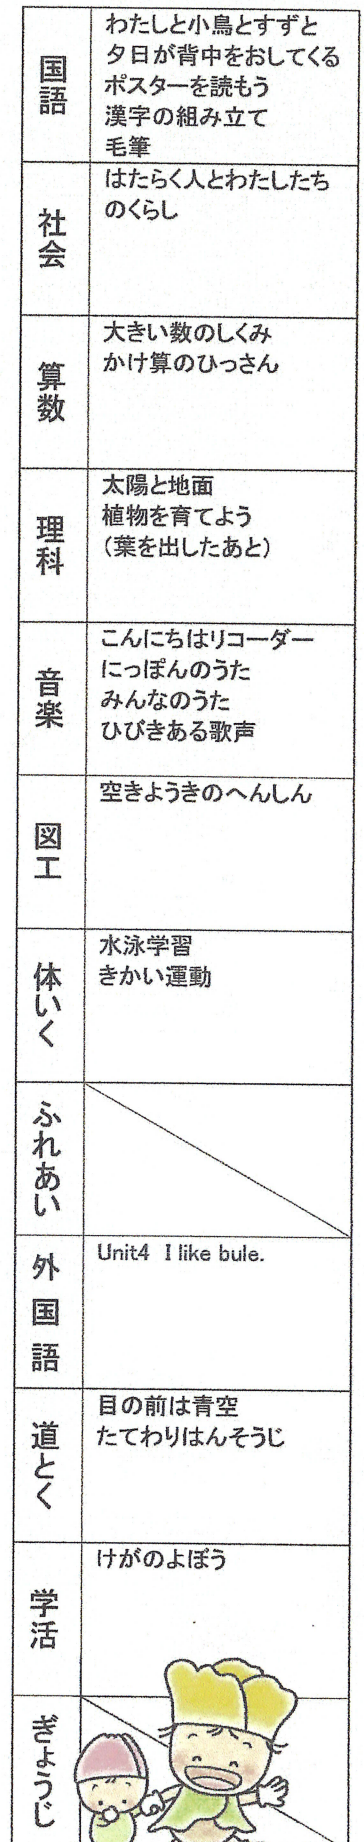 国語
わたしと小鳥とすずと
夕日が背中をおしてくる
ポスターを読もう
漢字の組み立て
毛筆
社会
はたらく人とわたしたち
のくらし
算数
大きい数のしくみ
かけ算のひっさん
理科
太陽と地面
植物を育てよう
(葉を出したあと)
音楽
こんにちはリコーダー
にっぽんのうた
みんなのうた
ひびきある歌声
図工
空きようきのへんしん
体いく
水泳学習
きかい運動
ふれあい
外国語
Unit4 I like bule.
道とく
目の前は青空
たてわりはんそうじ
学活
けがのよぼう
ぎょうじ